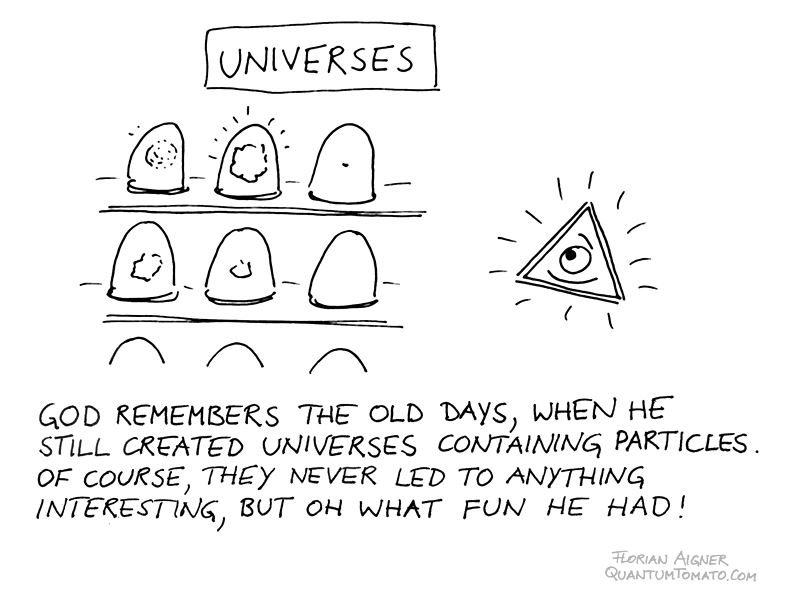 UNIVERSES
GOD REMEMBERS THE OLD DAYS, WHEN HE
STILL CREATED UNIVERSES CONTAINING PARTICLES.
OF COURSE, THEY NEVER LED TO ANYTHING
INTERESTING, BUT OH WHAT FUN HE HAD!
FLORIAN AIGNER
QUANTUMTOMATO.COM